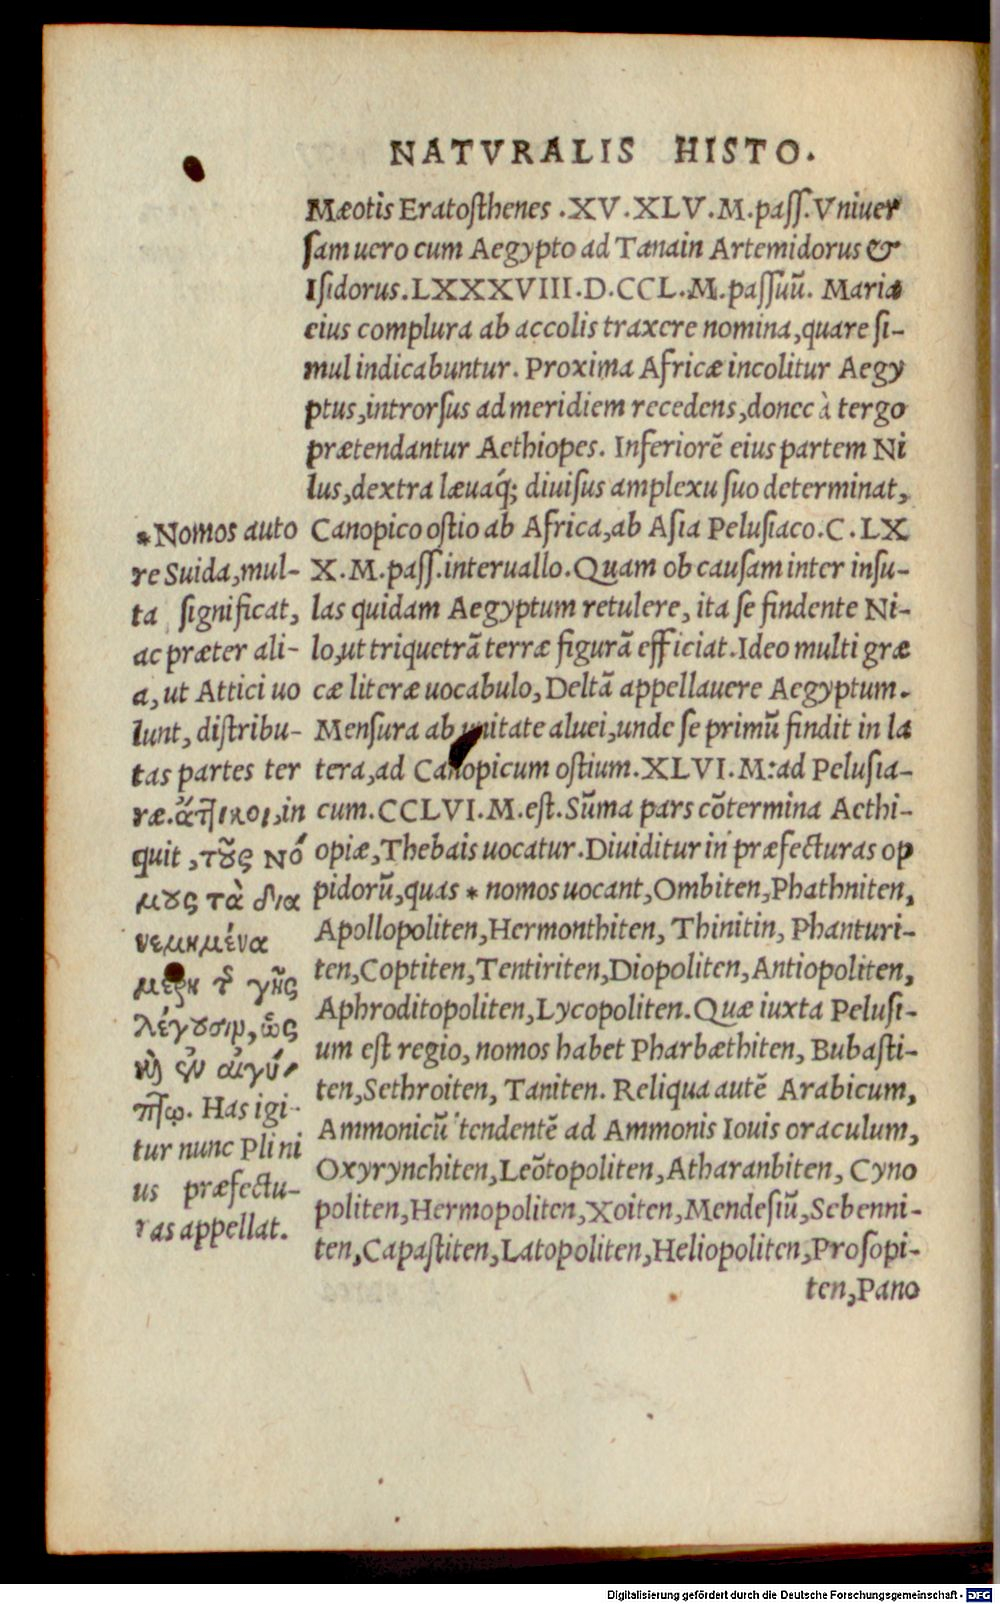 NATVRALIS HISTO.
Mæotis Eratosthenes .XV.XLV.M.pass.Vniuer
sam uero cum Aegypto ad Tanain Artemidorus &
Isidorus.LXXXVIII.D.CCL.M.passuũ. Maria
eius complura ab accolis traxere nomina,quare si-
mul indicabuntur. Proxima Africæ incolitur Aegy
ptus,introrsus ad meridiem recedens,donec à tergo
prætendantur Aethiopes. Inferiorẽ eius partem Ni
lus,dextra læuaq́; diuisus amplexu suo determinat,
Canopico ostio ab Africa,ab Asia Pelusiaco.C.LX
X.M.pass.interuallo.Quam ob causam inter insu-
las quidam Aegyptum retulere, ita se findente Ni-
lo,ut triquetrã terræ figurã efficiat.Ideo multi græ
cæ literæ uocabulo,Deltã appellauere Aegyptum.
Mensura ab unitate aluei,unde se primũ findit in la
tera,ad Canopicum ostium.XLVI.M:ad Pelusia-
cum.CCLVI.M.est.Sũma pars cõtermina Aethi-
opiæ,Thebais uocatur.Diuiditur in præfecturas op
pidorũ,quas * nomos uocant,Ombiten,Phathniten,
Apollopoliten,Hermonthiten, Thinitin, Phanturi-
ten,Coptiten,Tentiriten,Diopoliten,Antiopoliten,
Aphroditopoliten,Lycopoliten.Quæ iuxta Pelusi-
um est regio, nomos habet Pharbæthiten, Bubasti-
ten,Sethroiten, Taniten. Reliqua autẽ Arabicum,
Ammonicũ tendentẽ ad Ammonis Iouis oraculum,
Oxyrynchiten,Leõtopoliten,Atharanbiten, Cyno
politen,Hermopoliten,Xoiten,Mendesiũ,Sebenni-
ten,Capastiten,Latopoliten,Heliopoliten,Prosopi-
ten,Pano
*Nomos auto
re Suida,mul-
ta significat,
ac præter ali-
a,ut Attici uo
lunt, distribu-
tas partes ter
ræ.ἄττικοι,in
quit,τοὺς νό
μους τὰ δια
νεμημένα
μέρη τ̃ γῆς
λέγουσιν, ὡς
καὶ ἐν αἰγύ
πτῳ. Has igi-
tur nunc Plini
us præfectu-
ras appellat.
Digitalisierung gefördert durch die Deutsche Forschungsgemeinschaft - DFG